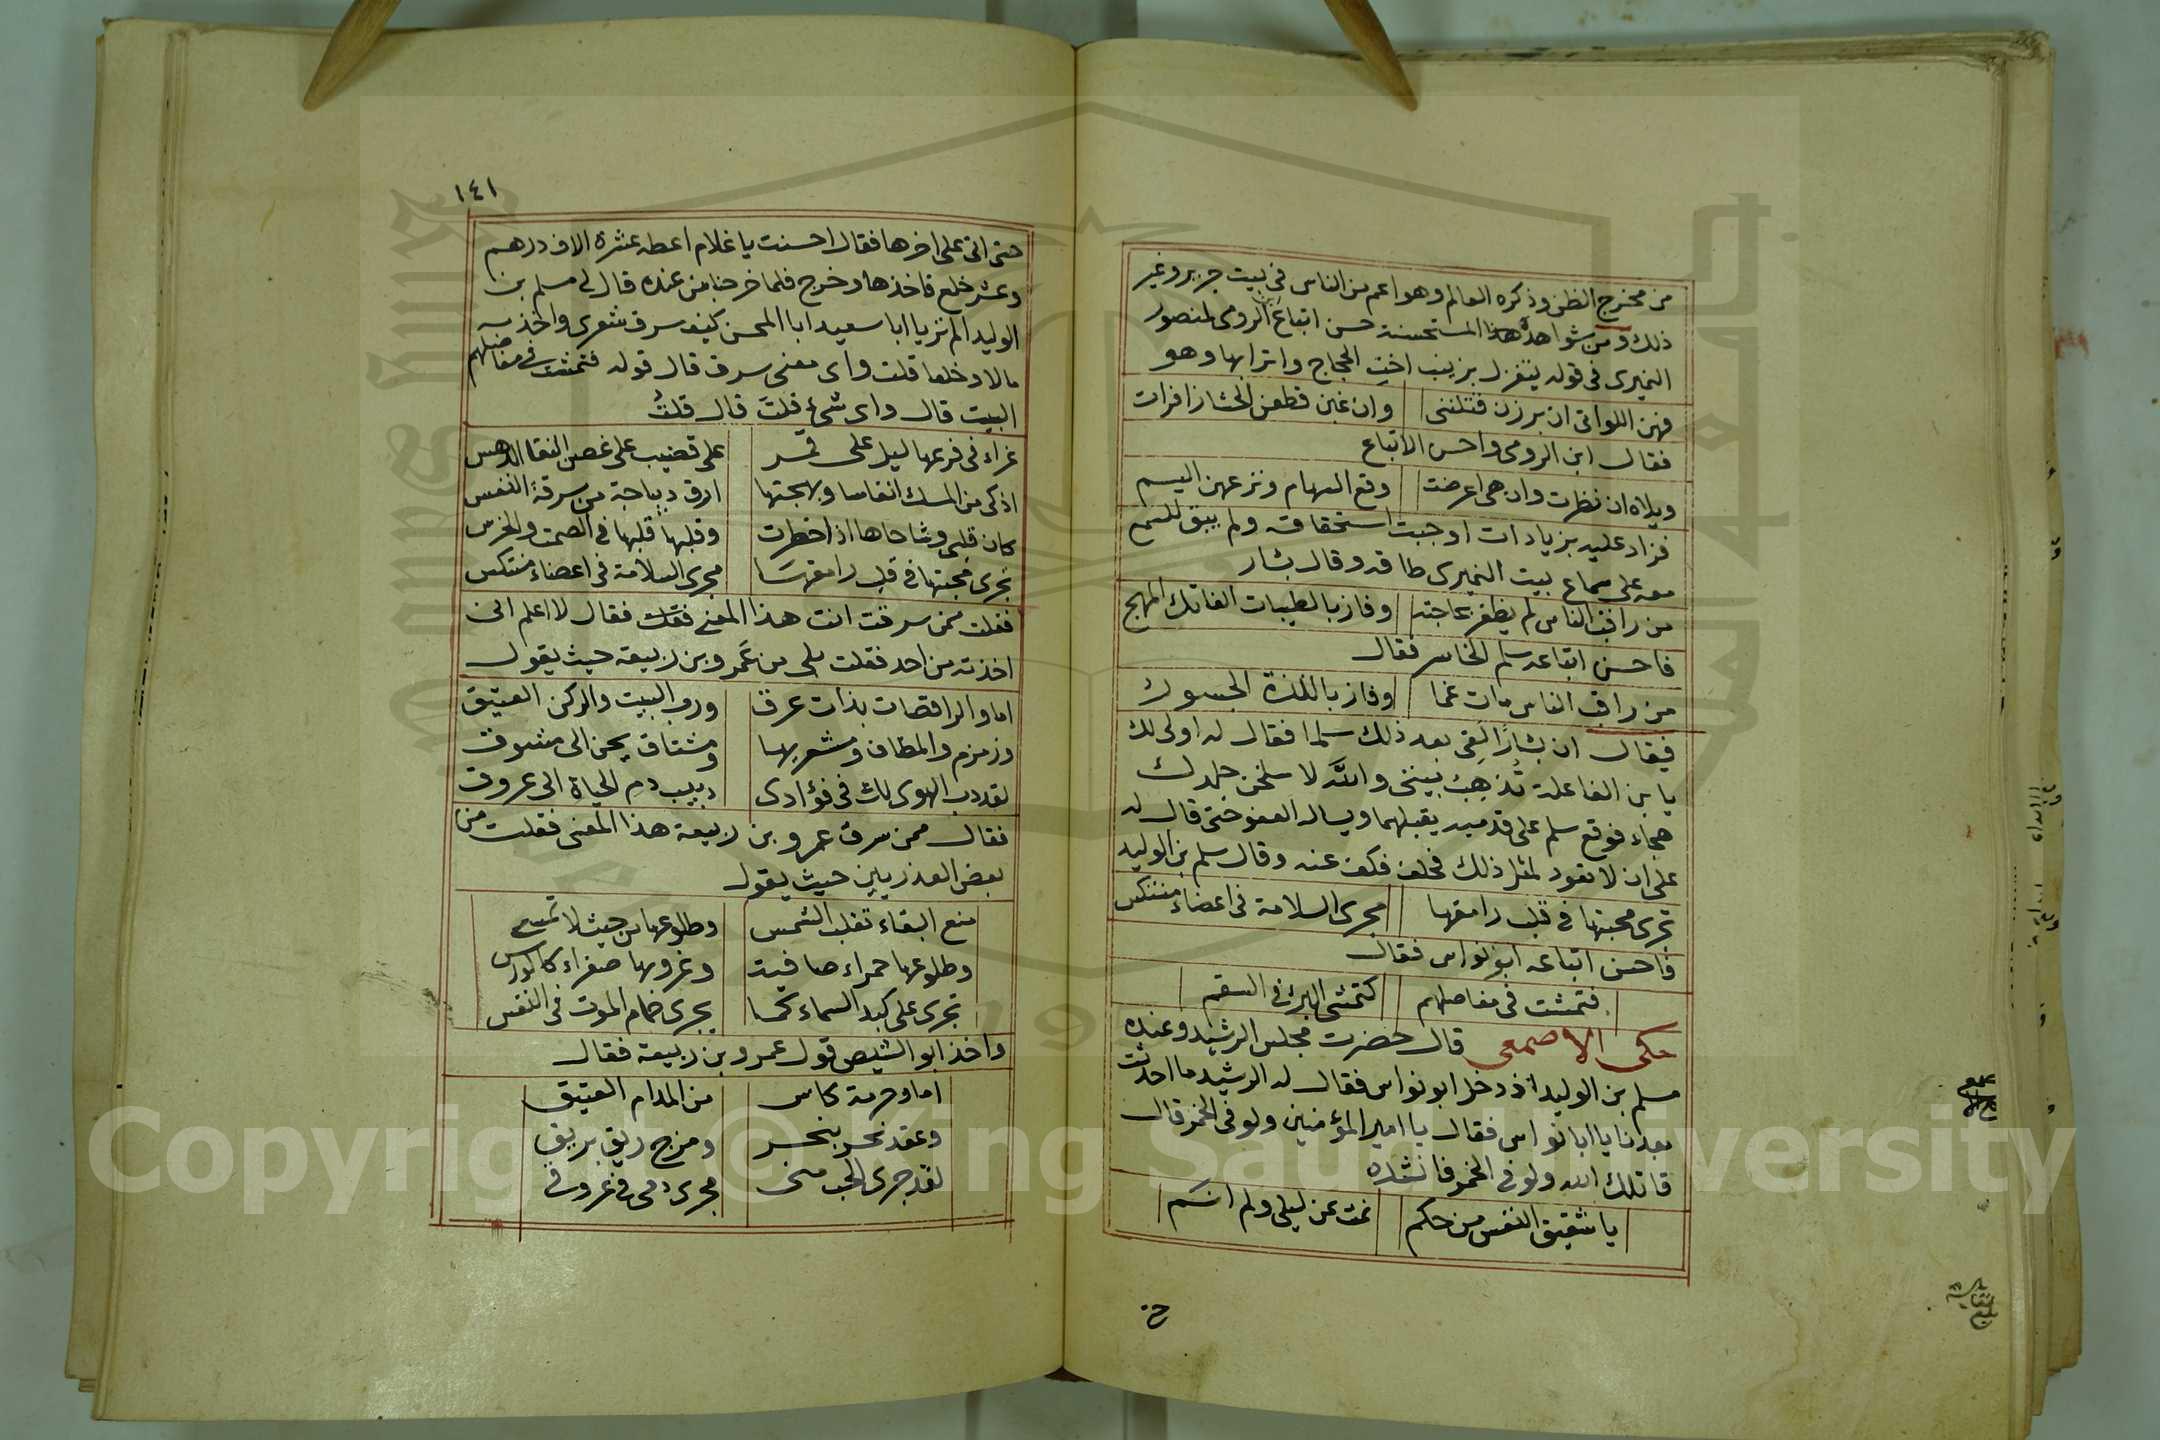 من مخرج الظن وذكره العالم وهو اعم من الناس في بيت جرير وغير
ذلك ومن شواهده هذا المستحسنة حسن اتباع ابن الرومي لمنصور
النميري في قوله يتغزل بزينب اخت الحجاج واترابها وهو
فهن اللواتي ان برزن قتلنني وان غبن قطعن الحشا زافرات
فقال ابن الرومي واحسن الاتباع
ويلاه ان نظرت وان هي اعرضت وقع السهام ونزعهن اليم
فزاد عليه بزيادات اوجبت استحقاقه ولم يبق للسمع
معه على سماع بيت النميري طاقه وقال بشار
من راقب الناس لم يظفر بحاجته وفاز بالطيبات الفاتك اللهج
فاحسن اتباعه سلم الخاسر فقال
من راقب الناس مات غما وفاز باللذة الجسور
فيقال ان بشارا لقى بعد ذلك سلما فقال له اولى لك
يا بن الفاعلة تذهب ببيتي والله لا سلخن جلدك
هجاء فوقع سلم على قدميه يقبلهما ويساله العفو حتى قال له
على ان لا تعود لمثل ذلك فحلف فكف عنه وقال مسلم بن الوليد
تجرى محبتها في قلب رامقها مجرى السلامة في اعضاء منتكس
فاحسن اتباعه ابو نواس فقال
فتمشت في مفاصلهم كتمشي البرء في السقم
حكى الاصمعي قال حضرت مجلس الرشيد وعنده
مسلم بن الوليد اذ دخل ابو نواس فقال له الرشيد ما احدثت
بعدنا يا ابا نواس فقال يا امير المؤمنين ولو في الخمر قال
قاتلك الله ولو في الخمر فانشده
يا شقيق النفس من حكم نمت عن ليلي ولم انم
١٤١
حتى اتى على اخرها فقال احسنت يا غلام اعطه عشرة الاف درهم
وعشر خلع فاخذها وخرج فلما خرجنا من عنده قال لي مسلم بن
الوليد الم تر يا ابا سعيد ابا الحسن كيف سرق شعري واخذ به
مالا وخلعا قلت واى معنى سرق قال قوله فتمشت في مفاصلهم
البيت قال واى شئ قلت قال قلت
غراء في فرعها ليل على قمر على قضيب على غصن النقا الدهس
اذكى من المسك انفاسا وبهجتها ارق ديباجة من سرقة النفس
كان قلبي وشاحاها اذا خطرت وقلبها قلبها في الصمت والخرس
تجرى محبتها في قلب رامقها مجرى السلامة في اعضاء منتكس
فقلت ممن سرقت انت هذا المعنى فقال لا اعلم انى
اخذته من احد فقلت بلى من عمرو بن ربيعة حيث يقول
اما والراقصات بذات عرق ورب البيت والركن العتيق
وزمزم والمطاف ومشعريها ومشتاق يحن الى مشوق
لقد دب الهوى لك في فؤادى دبيب دم الحياة الى عروق
فقال ممن سرق عمرو بن ربيعة هذا المعنى فقلت من
بعض العذريين حيث يقول
منع البقاء تقلب الشمس وطلوعها من حيث لا تمسي
وطلوعها حمراء صافية وغروبها صفراء كالورس
تجرى على كبد السماء كما يجرى حمام الموت في النفس
واخذ ابو الشيص قول عمرو بن ربيعة فقال
اما وحرمة كاس من المدام العتيق
وعقد نحر بنحر ومزج ريق بريق
لقد جرى الحب منى مجرى دمى في عروقى
Copyright © King Saud University
1957